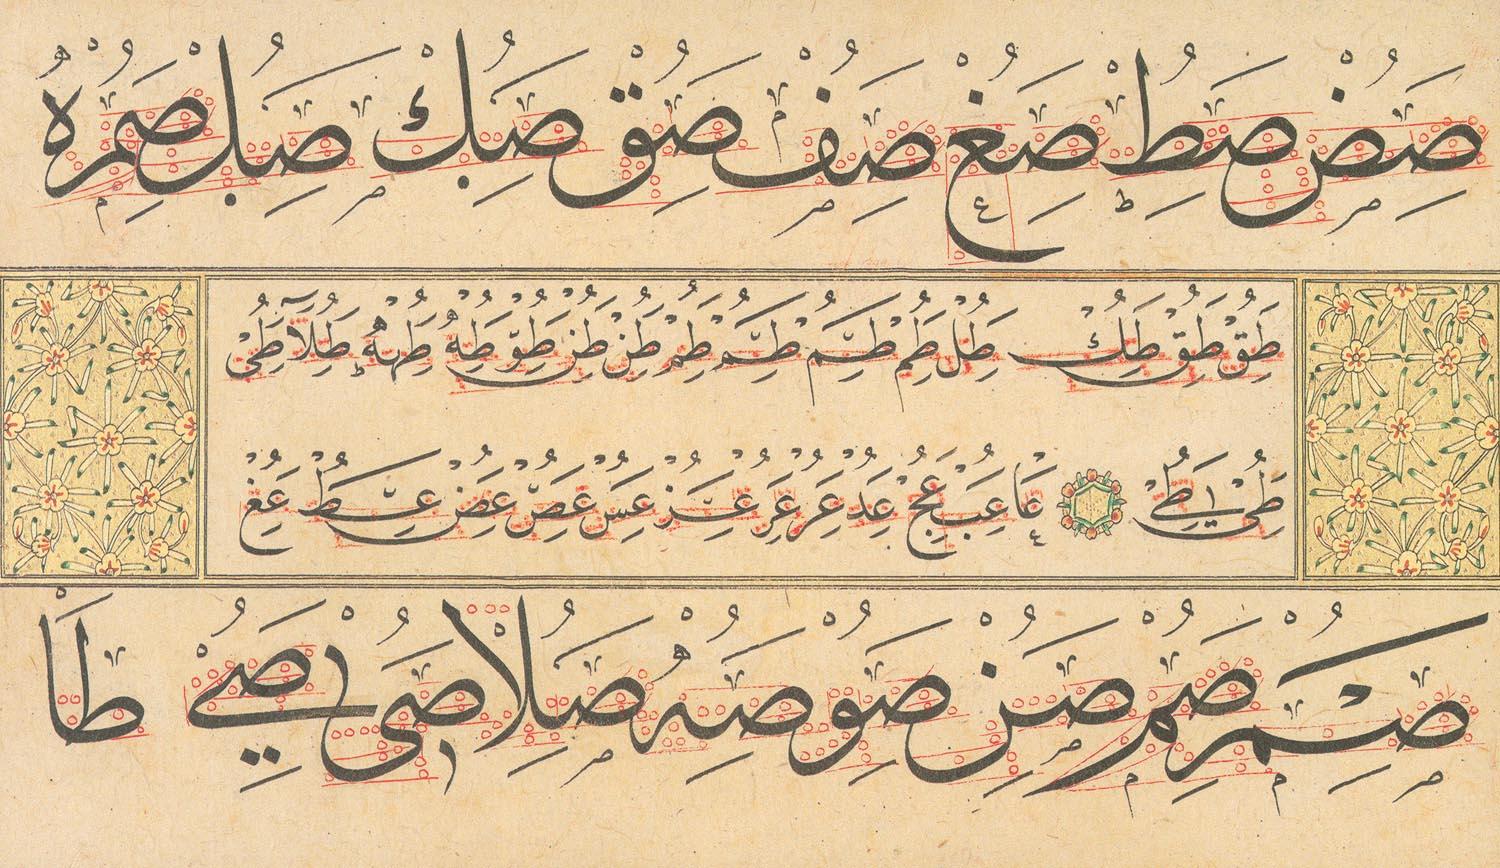 صض صط صغ صف صق صبك صبل صمره
طق طق طك طل طم طم طم طم طن طن طو طه طه طلا طى
طى طى عا عب عج عد عر عر عز عس عص عض عط عغ
صم صم صن صو صه صلا صى صى طا